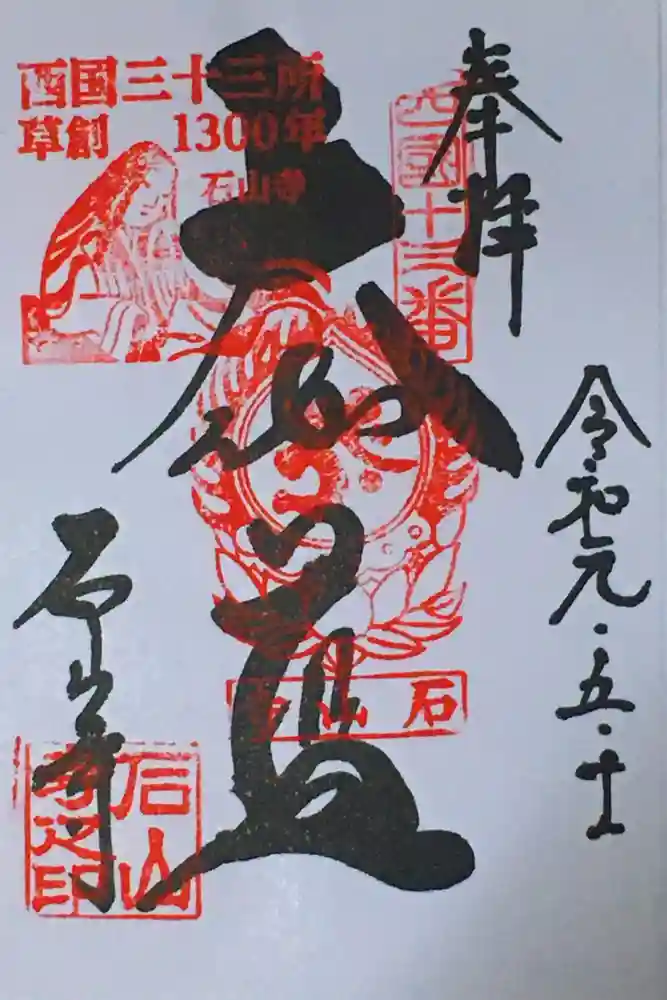 奉拝
西国十三番
令和元・五・十一
西国三十三所
草創 1300年
石山寺
大伽藍
石山寺
石山寺
石山寺之印